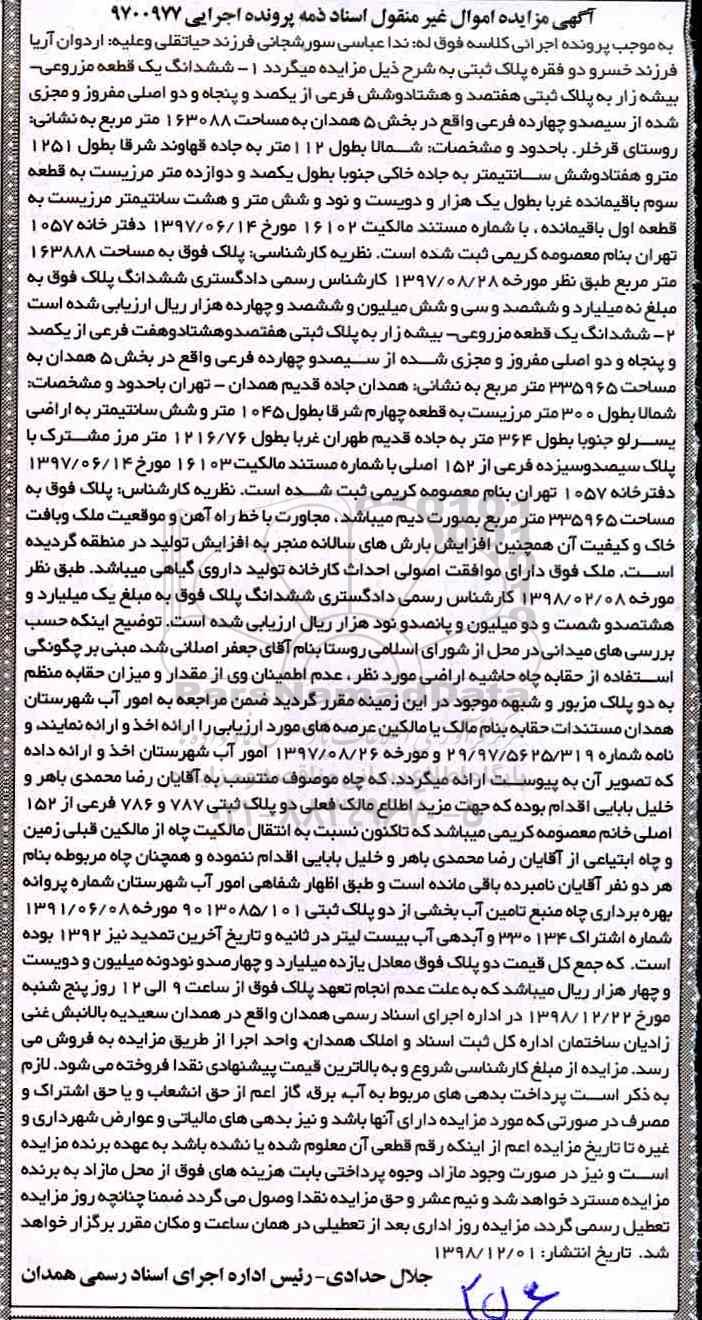 آگهی مزایده اموال غیر منقول اسناد ذمه پرونده اجرایی ۹۷۰۰۹۷۷
به موجب پرونده اجرائی کلاسه فوق له: ندا عباسی سورشجانی فرزند حیاتقلی وعلیه: اردوان آریا
فرزند خسرو دو فقره پلاک ثبتی به شرح ذیل مزایده میگردد ۱- ششدانگ یک قطعه مزروعی-
بیشه زار به پلاک ثبتی هفتصد و هشتادوشش فرعی از یکصد و پنجاه و دو اصلی مفروز و مجزی
شده از سیصدو چهارده فرعی واقع در بخش ۵ همدان به مساحت ۱۶۳۰۸۸ متر مربع به نشانی:
روستای قرخلر. باحدود و مشخصات: شمالا بطول ۱۱۲متر به جاده قهاوند شرقا بطول ۱۲۵۱
مترو هفتادوشش سانتیمتر به جاده خاکی جنوبا بطول یکصد و دوازده متر مرزیست به قطعه
سوم باقیمانده غربا بطول یک هزار و دویست و نود و شش متر و هشت سانتیمتر مرزیست به
قطعه اول باقیمانده ، با شماره مستند مالکیت ۱۶۱۰۲ مورخ ۱۳۹۷/۰۶/۱۴ دفتر خانه ۱۰۵۷
تهران بنام معصومه کریمی ثبت شده است. نظریه کارشناسی: پلاک فوق به مساحت ۱۶۳۸۸۸
متر مربع طبق نظر مورخه ۱۳۹۷/۰۸/۲۸ کارشناس رسمی دادگستری ششدانگ پلاک فوق به
مبلغ نه میلیارد و ششصد و سی و شش میلیون و ششصد و چهارده هزار ریال ارزیابی شده است
۲- ششدانگ یک قطعه مزروعی- بیشه زار به پلاک ثبتی هفتصدوهشتادوهفت فرعی از یکصد
و پنجاه و دو اصلی مفروز و مجزی شده از سیصدو چهارده فرعی واقع در بخش ۵ همدان به
مساحت ۳۳۵۹۶۵ متر مربع به نشانی: همدان جاده قدیم همدان - تهران باحدود و مشخصات:
شمالا بطول ۳۰۰ متر مرزیست به قطعه چهارم شرقا بطول ۱۰۴۵ متر و شش سانتیمتر به اراضی
یسرلو جنوبا بطول ۳۶۴ متر به جاده قدیم طهران غربا بطول ۱۲۱۶/۷۶ متر مرز مشترک با
پلاک سیصدوسیزده فرعی از ۱۵۲ اصلی با شماره مستند مالکیت ۱۶۱۰۳ مورخ ۱۳۹۷/۰۶/۱۴
دفترخانه ۱۰۵۷ تهران بنام معصومه کریمی ثبت شده است. نظریه کارشناس: پلاک فوق به
مساحت ۳۳۵۹۶۵ متر مربع بصورت دیم میباشد ، مجاورت با خط راه آهن و موقعیت ملک وبافت
خاک و کیفیت آن همچنین افزایش بارش های سالانه منجر به افزایش تولید در منطقه گردیده
است. ملک فوق دارای موافقت اصولی احداث کارخانه تولید داروی گیاهی میباشد. طبق نظر
مورخه ۱۳۹۸/۰۲/۰۸ کارشناس رسمی دادگستری ششدانگ پلاک فوق به مبلغ یک میلیارد و
هشتصدو شصت و دو میلیون و پانصدو نود هزار ریال ارزیابی شده است. توضیح اینکه حسب
بررسی های میدانی در محل از شورای اسلامی روستا بنام آقای جعفر اصلانی شد، مبنی بر چگونگی
استفاده از حقابه چاه حاشیه اراضی مورد نظر ، عدم اطمینان وی از مقدار و میزان حقابه منظم
به دو پلاک مزبور و شبهه موجود در این زمینه مقرر گردید ضمن مراجعه به امور آب شهرستان
همدان مستندات حقابه بنام مالک یا مالکین عرصه های مورد ارزیابی را ارائه اخذ و ارائه نمایند، و
نامه شماره ۲۹/۹۷/۵۶۲۵/۳۱۹ و مورخه ۱۳۹۷/۰۸/۲۶ امور آب شهرستان اخذ و ارائه داده
که تصویر آن به پیوست ارائه میگردد، که چاه موصوف منتسب به آقایان رضا محمدی باهر و
خلیل بابایی اقدام بوده که جهت مزید اطلاع مالک فعلی دو پلاک ثبتی ۷۸۷ و ۷۸۶ فرعی از ۱۵۲
اصلی خانم معصومه کریمی میباشد که تاکنون نسبت به انتقال مالکیت چاه از مالکین قبلی زمین
و چاه ابتیاعی از آقایان رضا محمدی باهر و خلیل بابایی اقدام ننموده و همچنان چاه مربوطه بنام
هر دو نفر آقایان نامبرده باقی مانده است و طبق اظهار شفاهی امور آب شهرستان شماره پروانه
بهره برداری چاه منبع تامین آب بخشی از دو پلاک ثبتی ۹۰۱۳۰۸۵/۱۰۱ مورخه ۱۳۹۱/۰۶/۰۸
شماره اشتراک ۳۳۰۱۳۴ و آبدهی آب بیست لیتر در ثانیه و تاریخ آخرین تمدید نیز ۱۳۹۲ بوده
است. که جمع کل قیمت دو پلاک فوق معادل یازده میلیارد و چهارصدو نودونه میلیون و دویست
و چهار هزار ریال میباشد که به علت عدم انجام تعهد پلاک فوق از ساعت ۹ الی ۱۲ روز پنج شنبه
مورخ ۱۳۹۸/۱۲/۲۲ در اداره اجرای اسناد رسمی همدان واقع در همدان سعیدیه بالانبش غنی
زادیان ساختمان اداره کل ثبت اسناد و املاک همدان، واحد اجرا از طریق مزایده به فروش می
رسد. مزایده از مبلغ کارشناسی شروع و به بالاترین قیمت پیشنهادی نقدا فروخته می شود. لازم
به ذکر است پرداخت بدهی های مربوط به آب، برق، گاز اعم از حق انشعاب و یا حق اشتراک و
مصرف در صورتی که مورد مزایده دارای آنها باشد و نیز بدهی های مالیاتی و عوارض شهرداری و
غیره تا تاریخ مزایده اعم از اینکه رقم قطعی آن معلوم شده یا نشده باشد به عهده برنده مزایده
است و نیز در صورت وجود مازاد، وجوه پرداختی بابت هزینه های فوق از محل مازاد به برنده
مزایده مسترد خواهد شد و نیم عشر و حق مزایده نقدا وصول می گردد ضمنا چنانچه روز مزایده
تعطیل رسمی گردد، مزایده روز اداری بعد از تعطیلی در همان ساعت و مکان مقرر برگزار خواهد
شد. تاریخ انتشار: ۱۳۹۸/۱۲/۰۱
جلال حدادی- رئیس اداره اجرای اسناد رسمی همدان